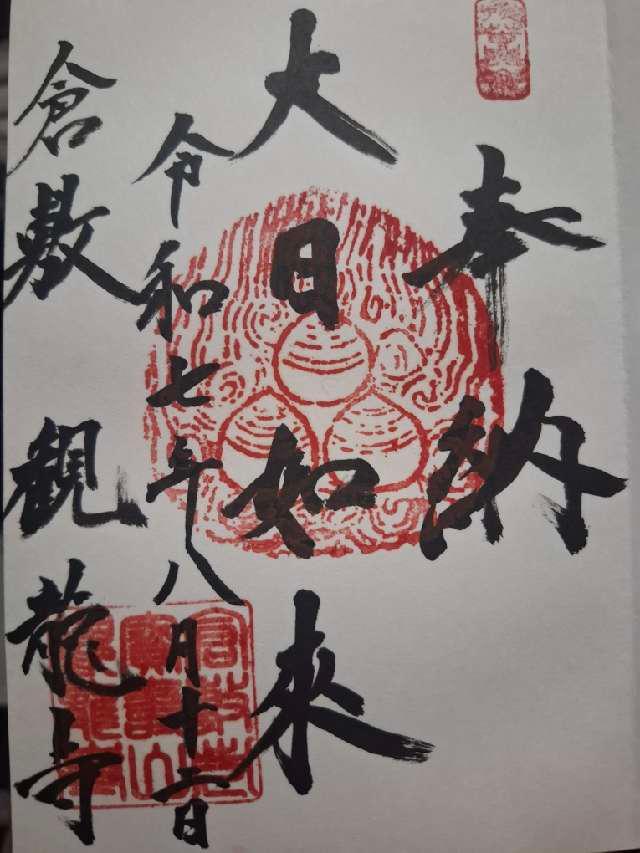 奉納
大日如来
令和七年八月十二日
倉敷 観龍寺